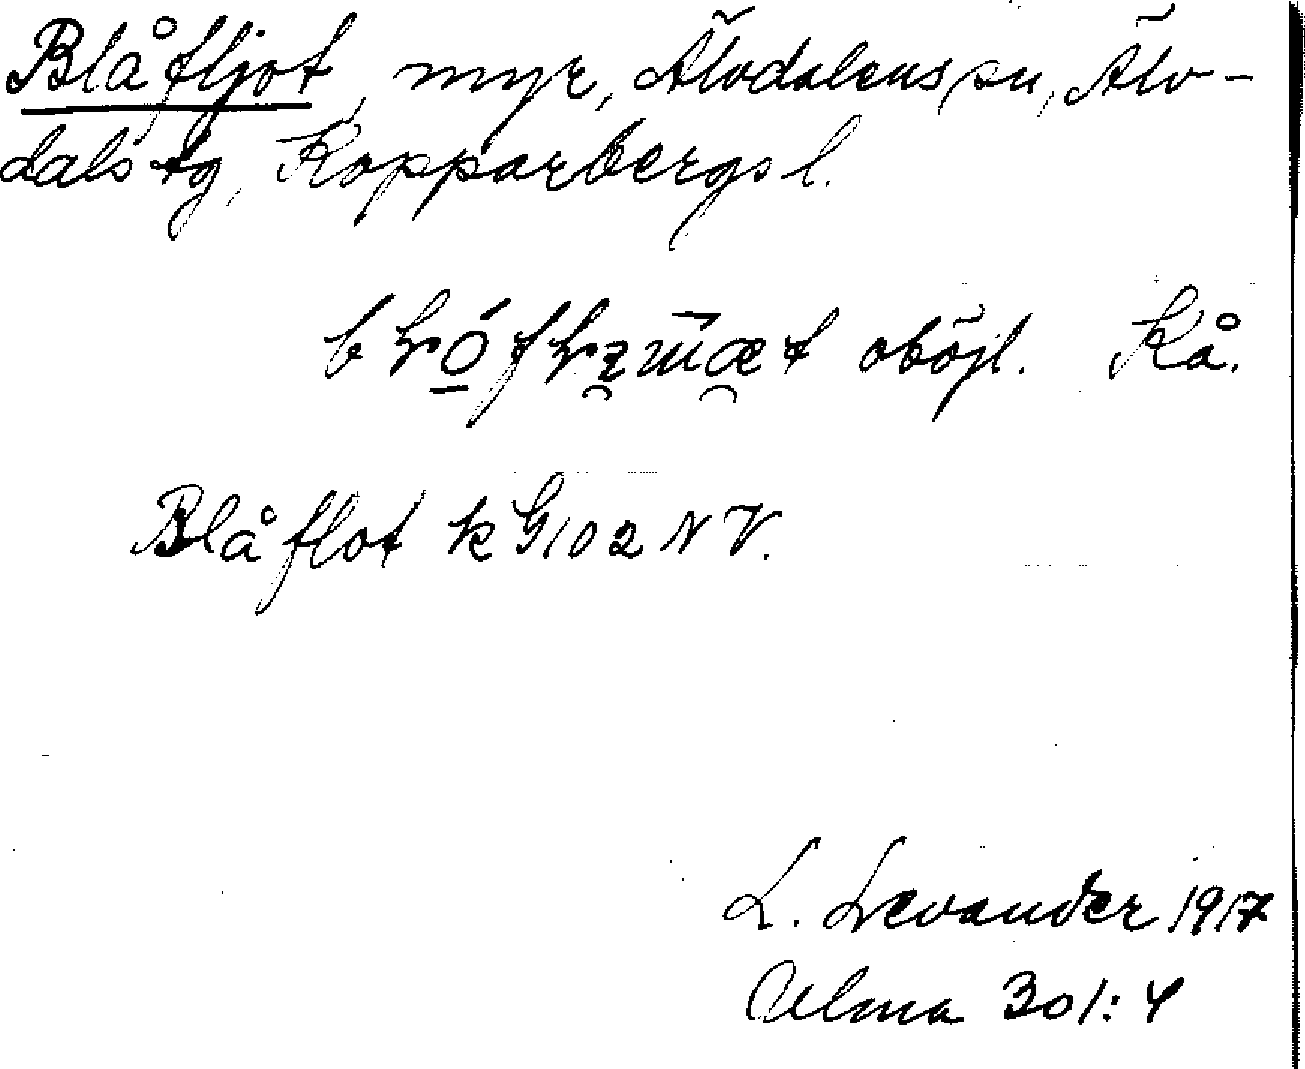 Blåfljot, myr, Älvdalens sn, Älv-
dals tg, Kopparbergs l.
oböjl. Kå.
Blåflot k G102 NV.
L. Levander 1917
Ulma 301:4